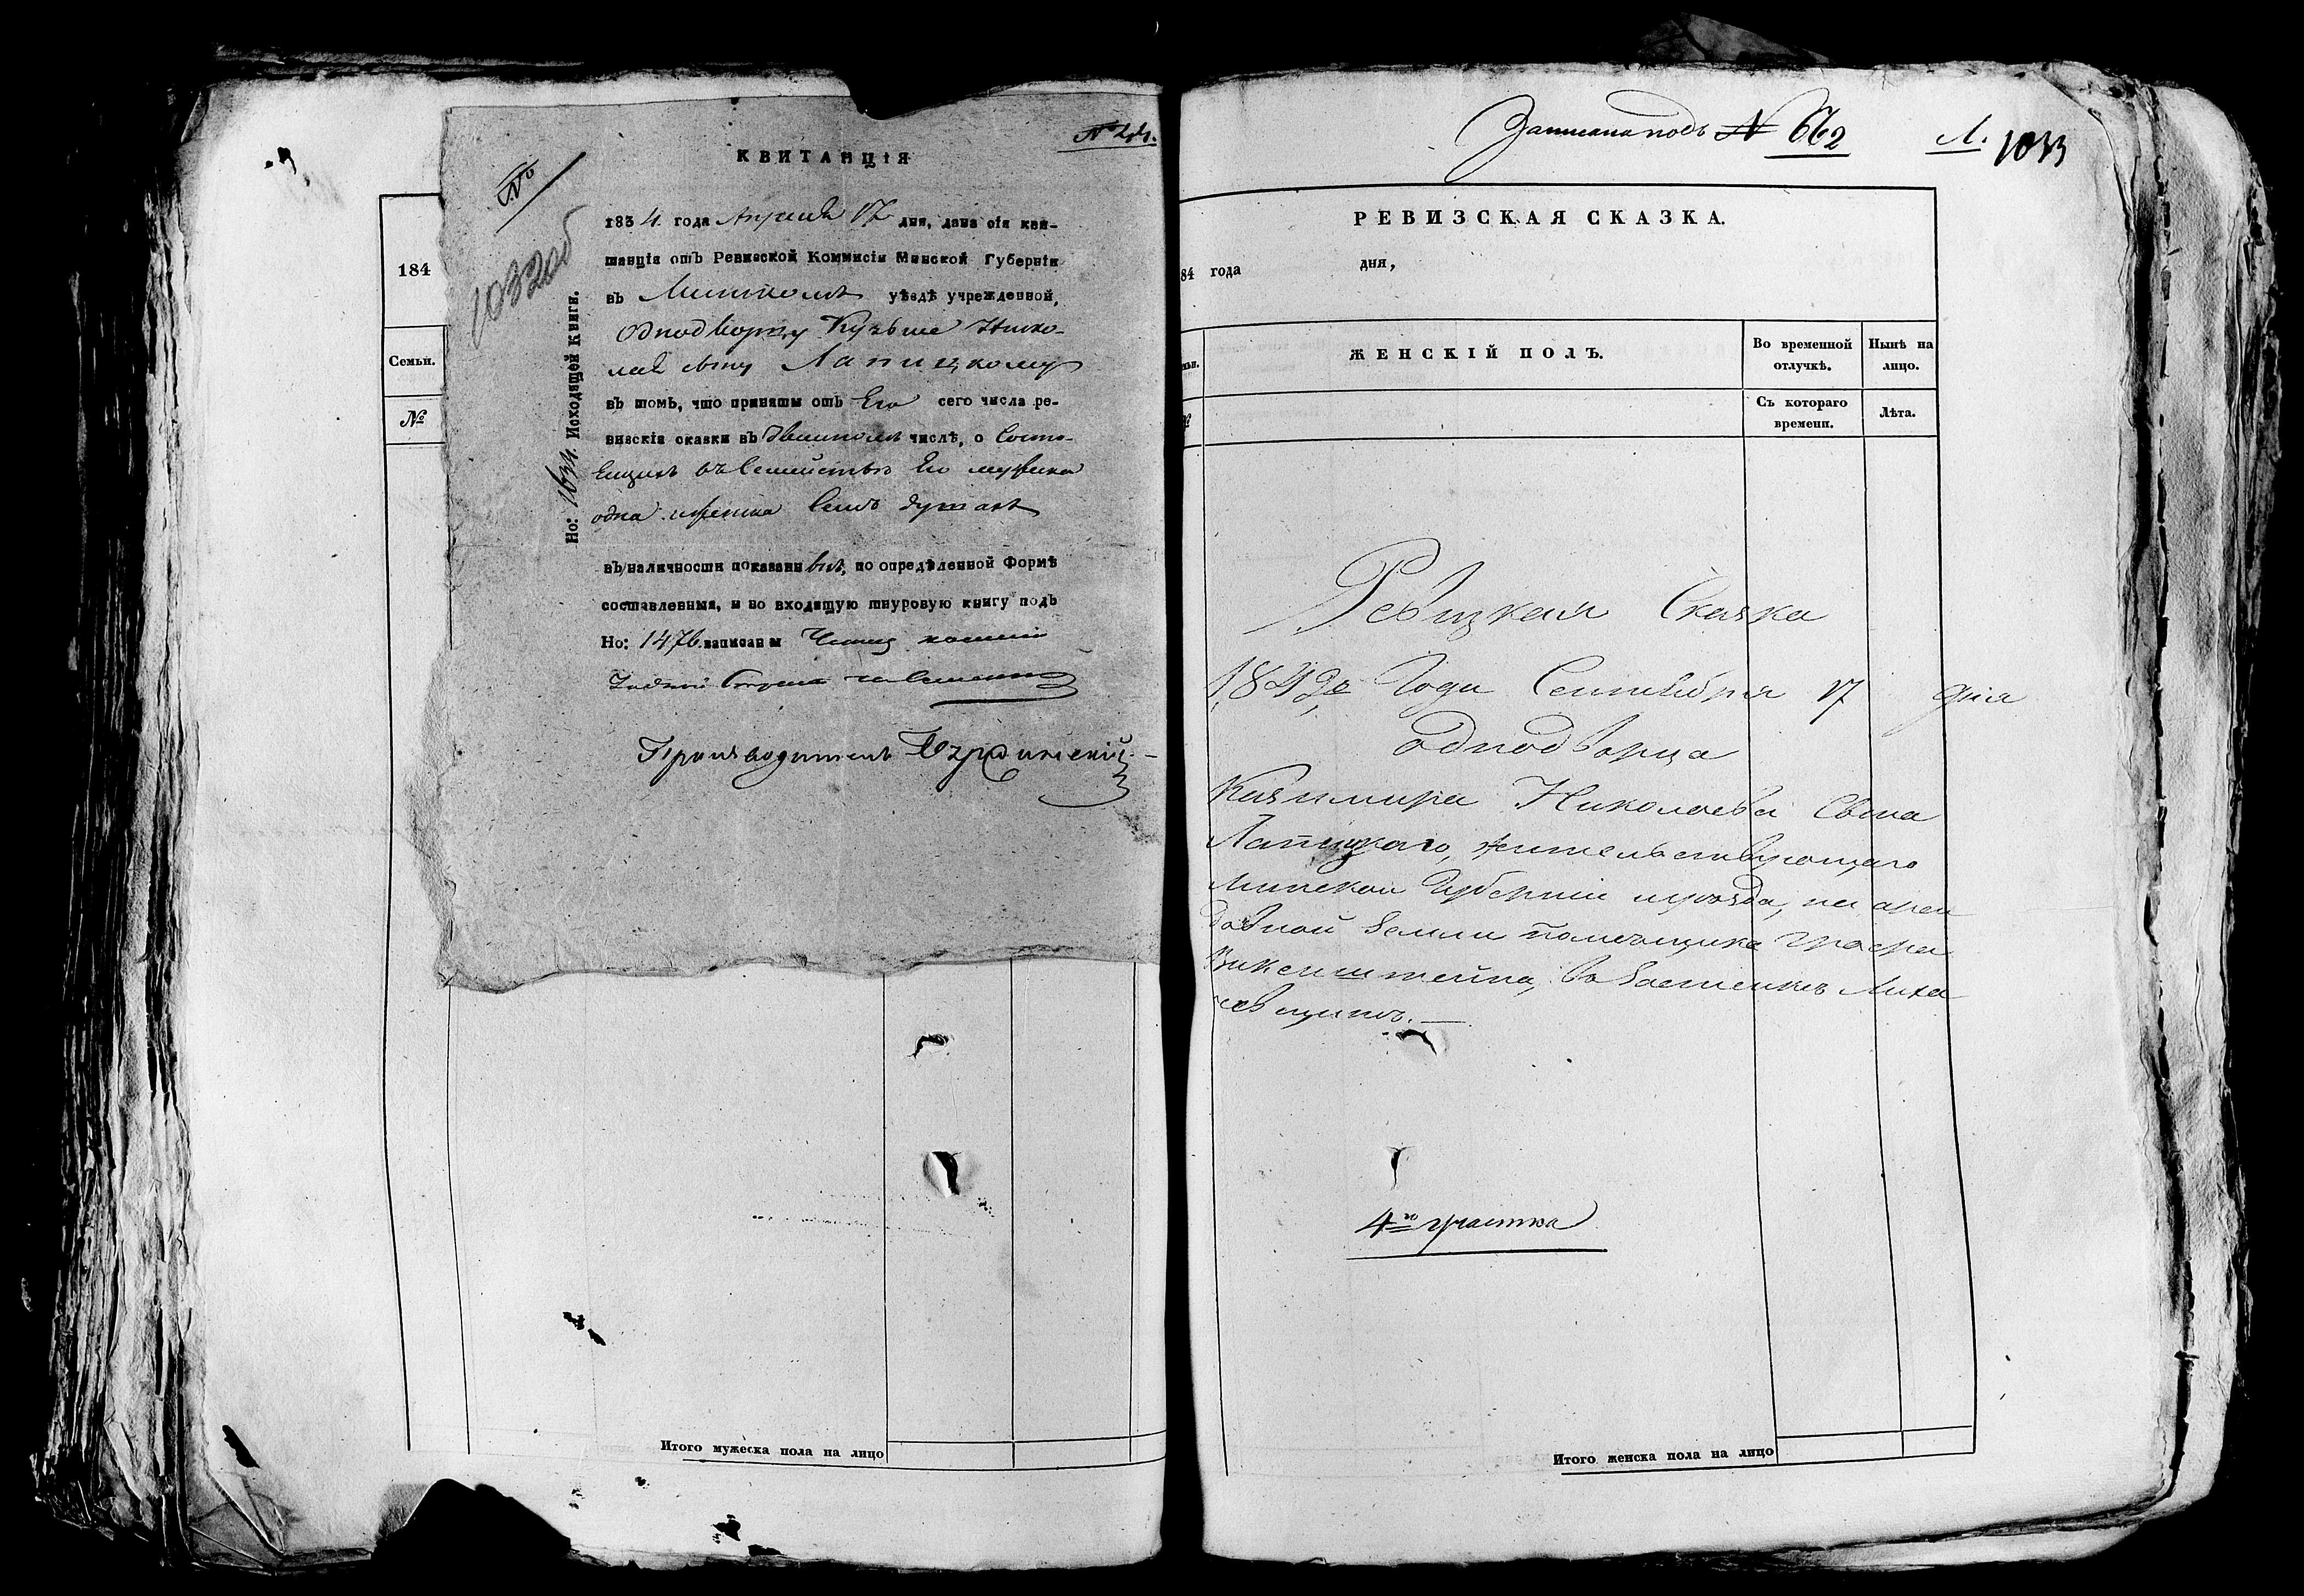 184
Семьи.
№
КВИТАНЦІЯ
№
1032об
Но: 1634. Исходящей Книги.
1834 года Апреля 17 дня, дана сія кви-
танція отъ Ревизской Коммисіи Минской Губерніи
въ Минскомъ уѣздѣ учрежденной,
Однодворцу Кузьме Нико-
лая сыну Лапицкому
въ томъ, что приняты отъ Его сего числа ре-
визскія сказки въ двойномъ числѣ, о Состо-
ящихъ въ Семействѣ Его мужска
одна женска Семь душахъ
въ наличности показанныхъ, по опредѣленной Формѣ
составленныя, и во входящую шнуровую книгу подъ
Но: 1476 записаны
Производитель
Итого мужеска пола на лицо
Записана подъ № 662
Л. 1033
РЕВИЗСКАЯ СКАЗКА.
84 года дня,
ЖЕНСКІЙ ПОЛЪ.
Во временной отлучкѣ.
Нынѣ на лицо.
Съ котораго времени.
Лѣта.
Ревизкая Сказка
1842го Года Сентября 17 дня
однодворца
Казимира Николаева Сына
Лапицкаго, жительствующаго
Минской Губерніи и уѣзда, на арен
довной Земли помѣщика Графа
Викенштейна, въ Застенкѣ Лиха
чевщинѣ. —
4го участка
Итого женска пола на лицо